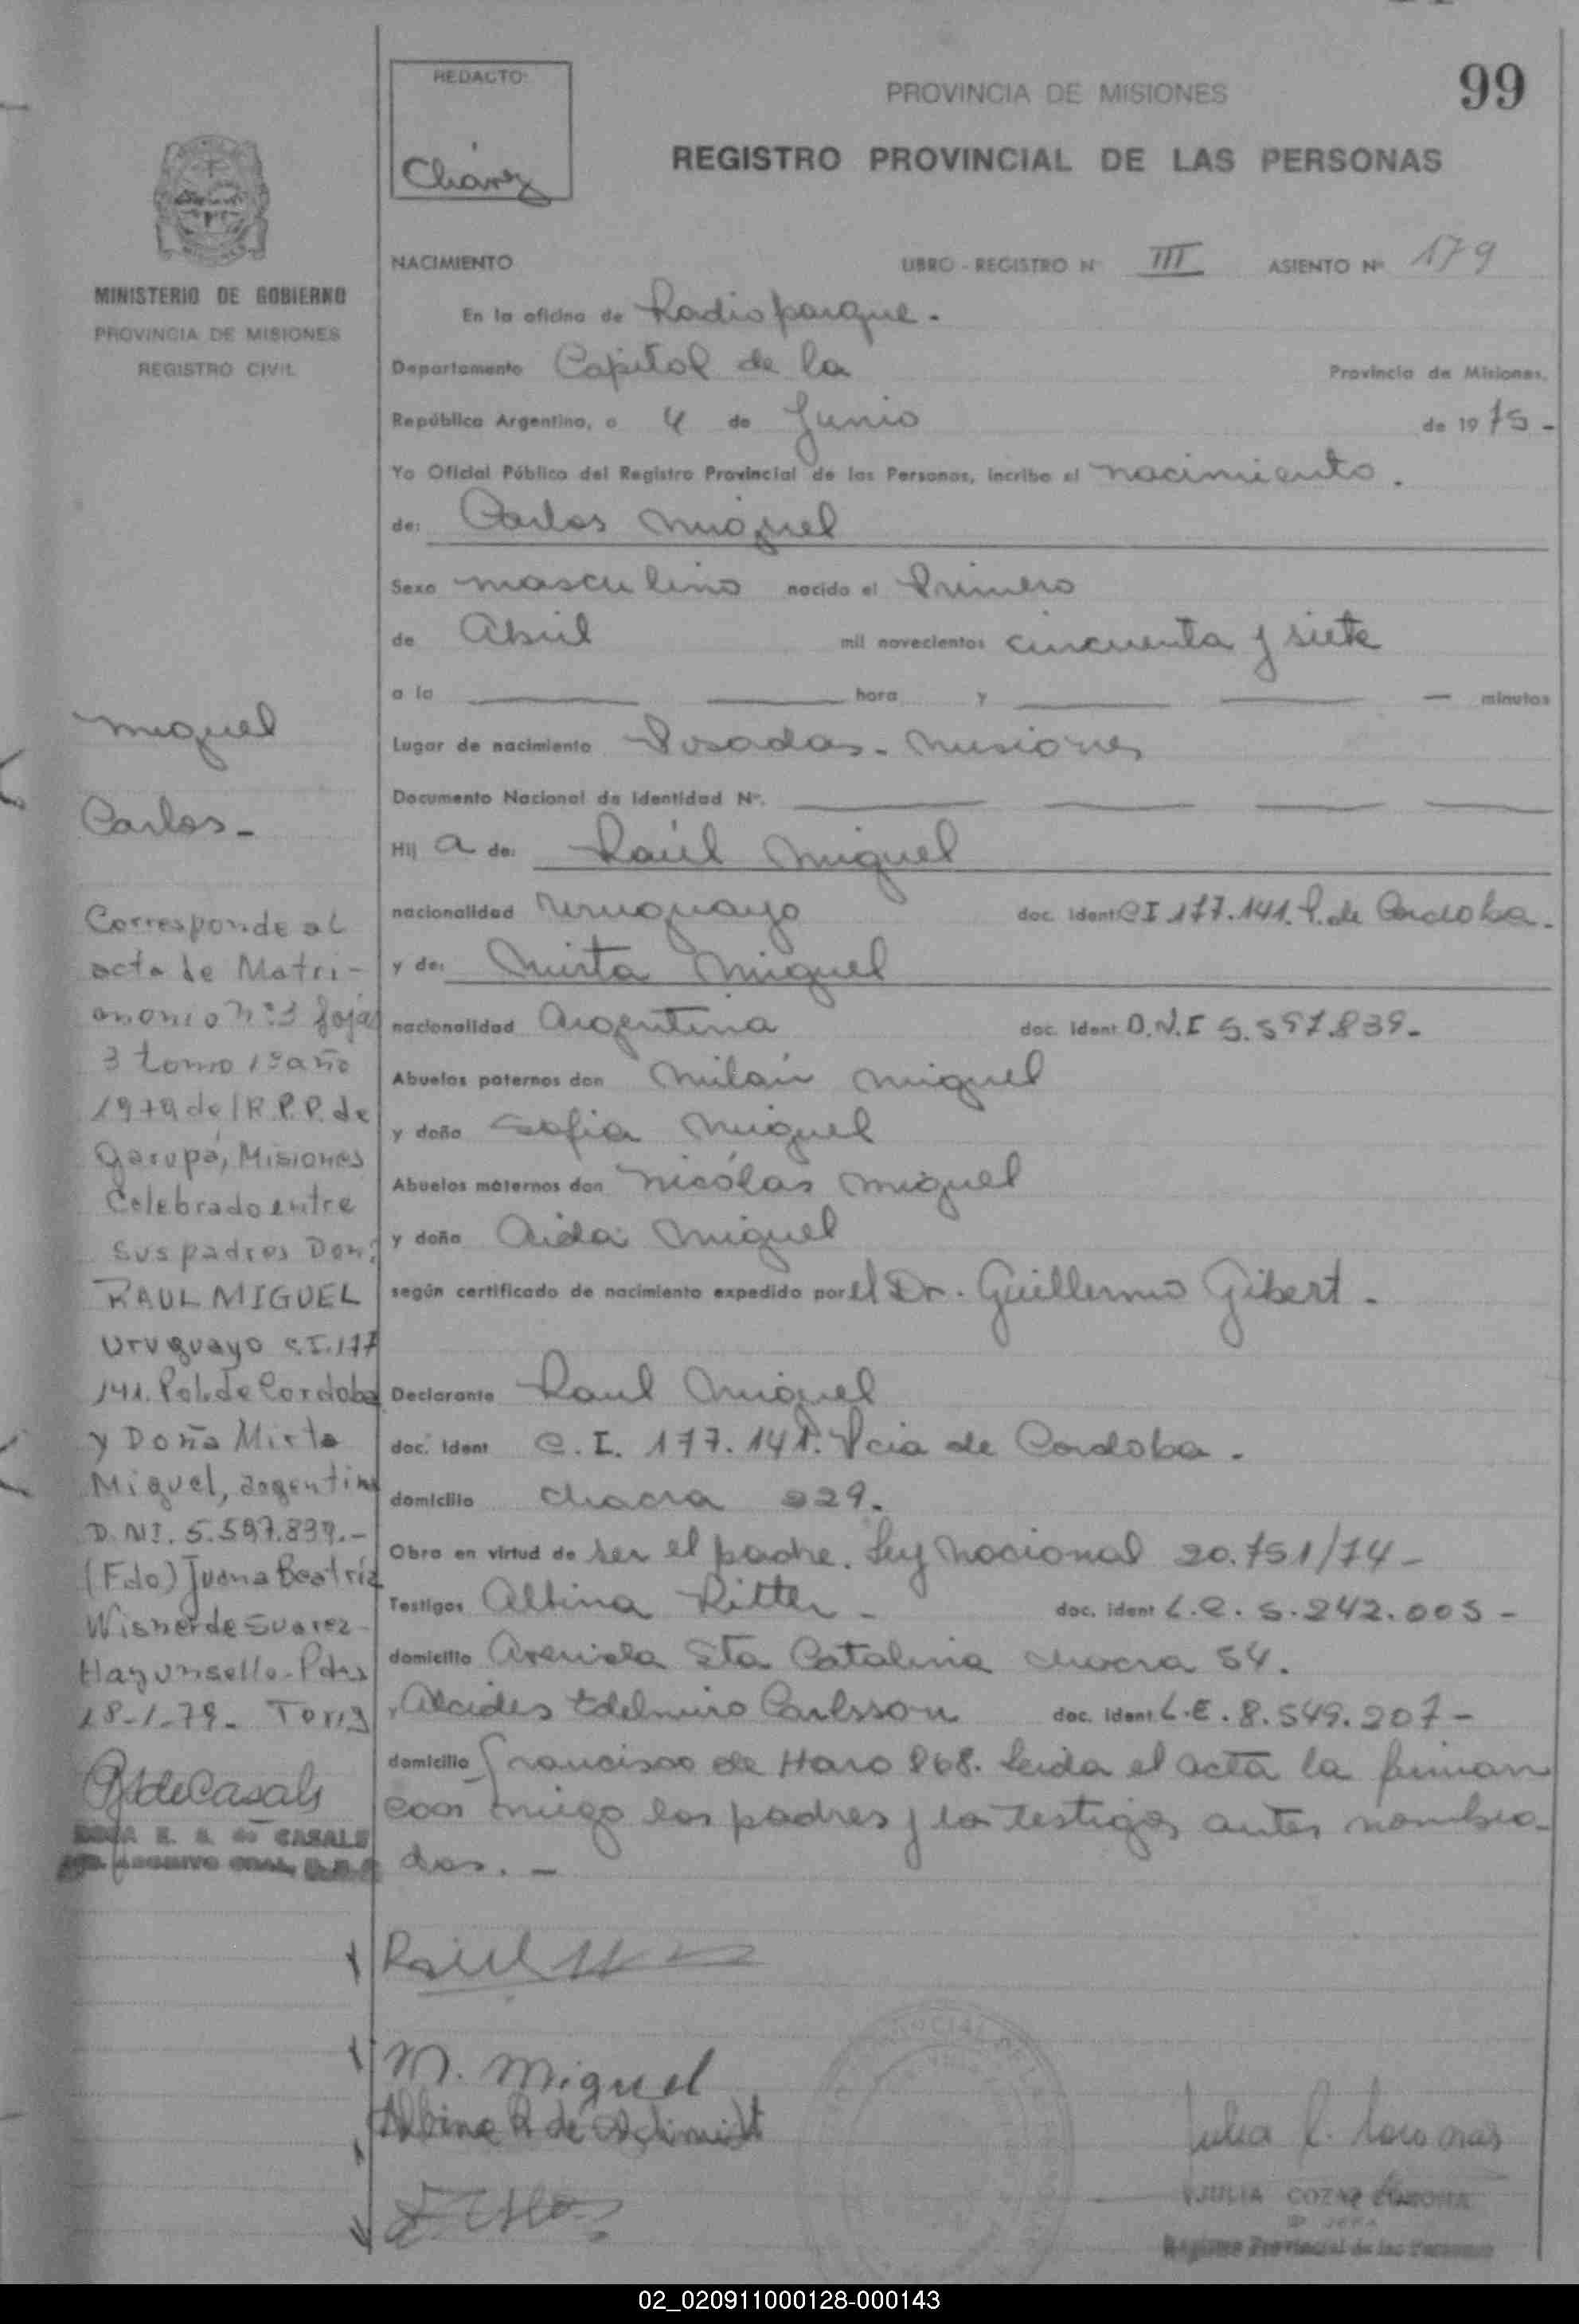 99
REDACTO
Chávez
PROVINCIA DE MISIONES
REGISTRO PROVINCIAL DE LAS PERSONAS
MINISTERIO DE GOBIERNO
PROVINCIA DE MISIONES
REGISTRO CIVIL
NACIMIENTO LIBRO - REGISTRO Nº III ASIENTO Nº 179
En la oficina de Radioparque.
Departamento Capital de la Provincia de Misiones,
República Argentina, a 4 de Junio de 1975 -
Yo Oficial Público del Registro Provincial de las Personas, incribo el nacimiento.
de: Carlos Miguel
Sexo masculino nacido el Primero
de Abril mil novecientos cincuenta y siete
a la hora y minutos
Lugar de nacimiento Posadas - Misiones
Documento Nacional de Identidad Nº.
Hij a de: Raúl Miguel
nacionalidad Uruguayo doc. ident C I 177.141. P. de Cordoba.
y de: Mirta Miguel
nacionalidad Argentina doc. ident D.N.I 5.597.839-
Abuelos paternos don Milán Miguel
y doña Sofia Miguel
Abuelos maternos don Nicólas Miguel
y doña Aida Miguel
según certificado de nacimiento expedido por el Dr. Guillermo Gibert.
Declarante Raul Miguel
doc. ident C. I. 177.141. Pcia de Cordoba.
domicilio chacra 229.
Obra en virtud de ser el padre. Ley nacional 20.751/74-
Testigos Albina Ritter - doc. ident L.C. 5.242.005 -
domicilio Avenida Sta Catalina chacra 54.
y Alcides Edelmiro Carlsson doc. ident. L.E. 8.549.207-
domicilio Francisco de Haro 868. Leida el acta la firman
con migo los padres y los testigos antes nombra-
dos. -
Miguel
Carlos -
Corresponde al
acta de Matri-
monio nº 3 fojas
3 tomo 1º año
1979 del R.P.P. de
Garupá, Misiones
Celebrado entre
sus padres Don:
RAUL MIGUEL
Uruguayo C.I. 177
141. Pol. de Cordoba
y Doña Mirta
Miguel, argentina
D.NI. 5.597.839.-
(Fdo) Juana Beatriz
Wisner de Suarez-
Hay un sello - Pdas
18-1-79.-
de Casals
E. S. de CASALS
ARCHIVO GRAL.
Raúl
M. Miguel
Albina R de Schimidt
JULIA
Registro Provincial de las Personas
02_020911000128-000143